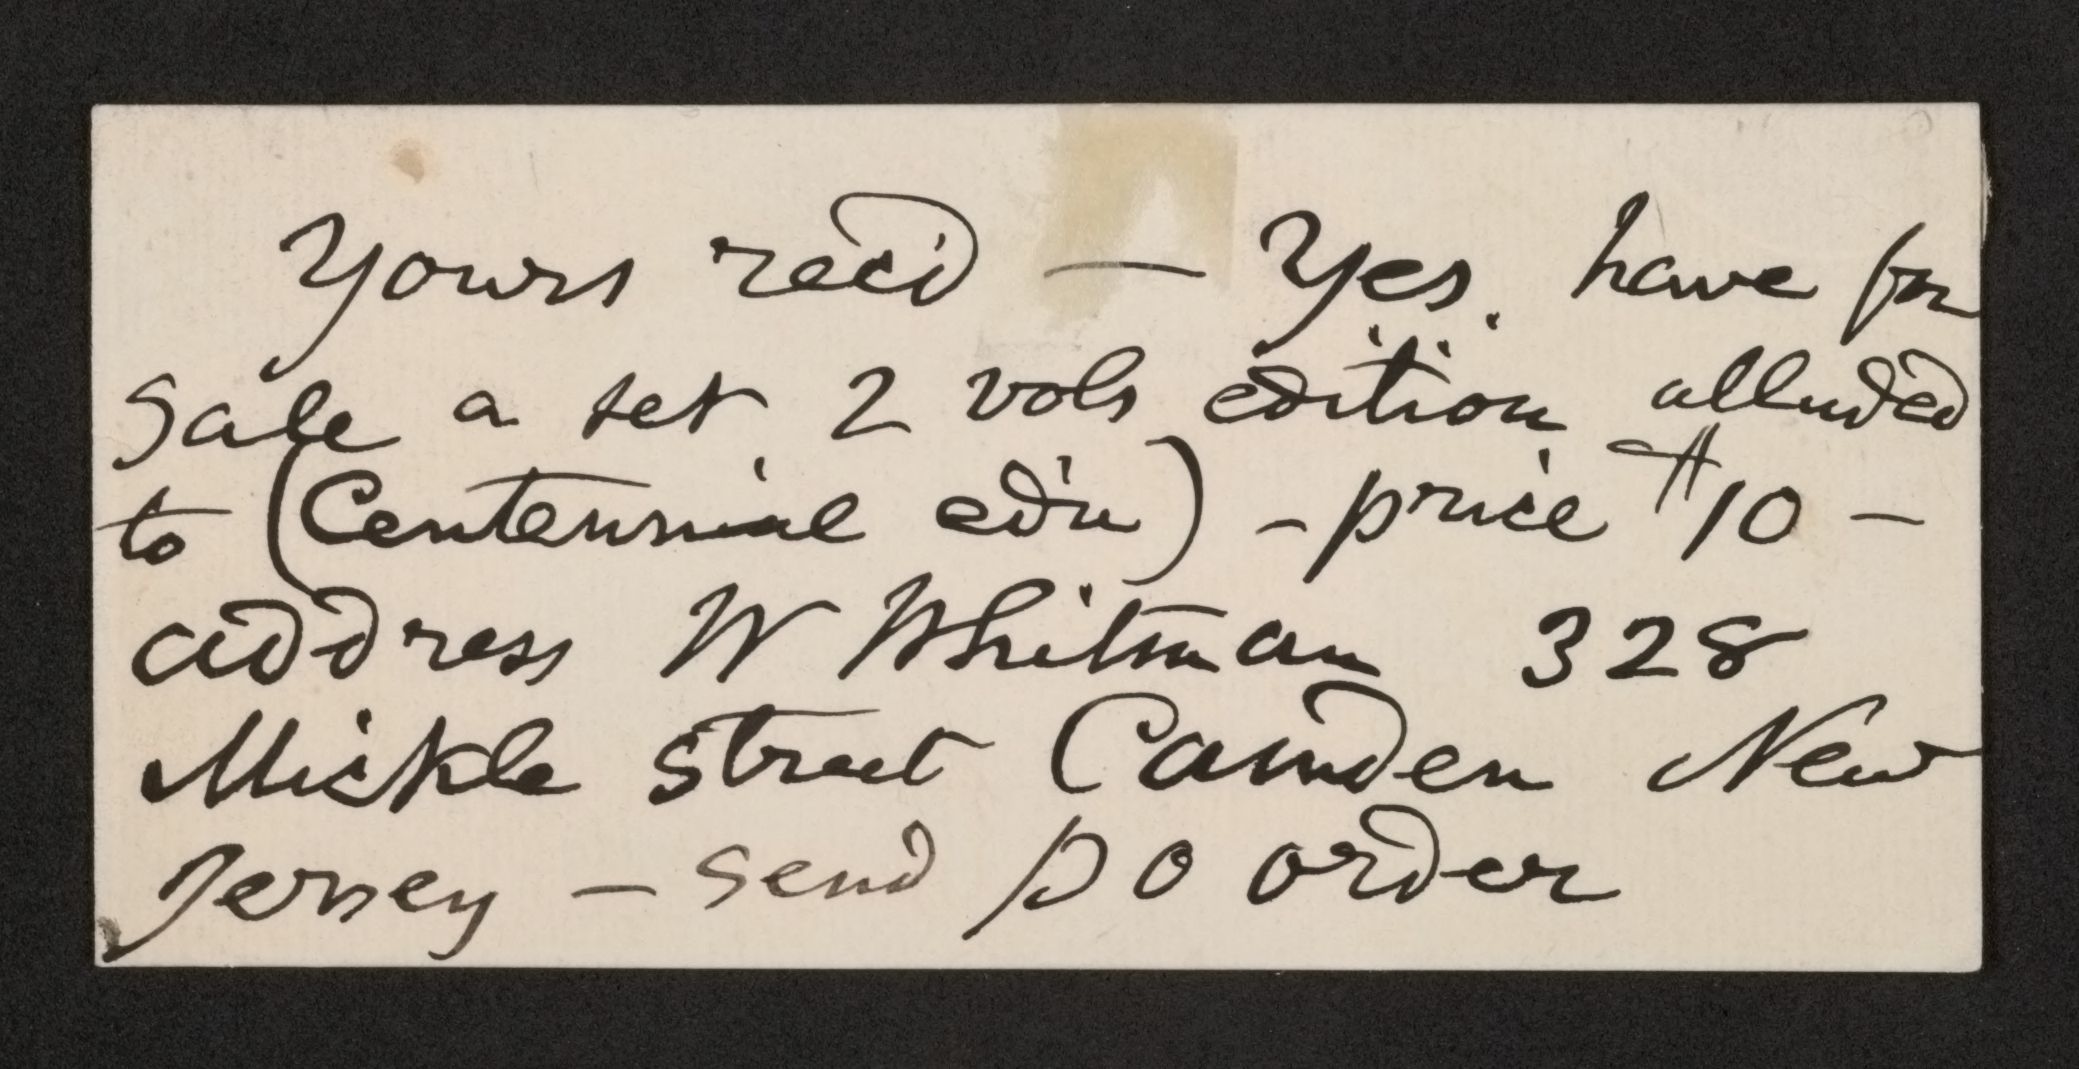 Yours rec'd — Yes. have for
sale a set 2 vols edition alluded
to (Centennial ed'n) - price $10 —
address W Whitman 328
Mickle street Camden New
Jersey — send P O order